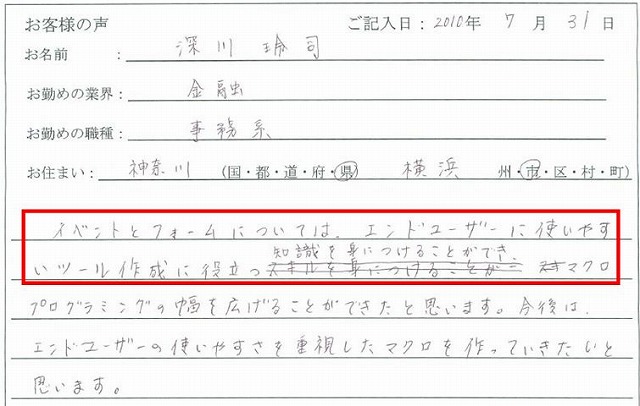 お客様の声 ご記入日:2010年 7月 31日
お名前 : 深川 玲司
お勤めの業界: 金融
お勤めの職種: 事務系
お住まい: 神奈川 (国・都・道・府・県) 横浜 州・市・区・村・町)
イベントとフォームについては、エンドユーザーに使いやす
知識を身につけることができ、
いツール作成に役立つスキルを身につけることが マクロ
プログラミングの幅を広げることができたと思います。今後は、
エンドユーザーの使いやすさを重視したマクロを作っていきたいと
思います。